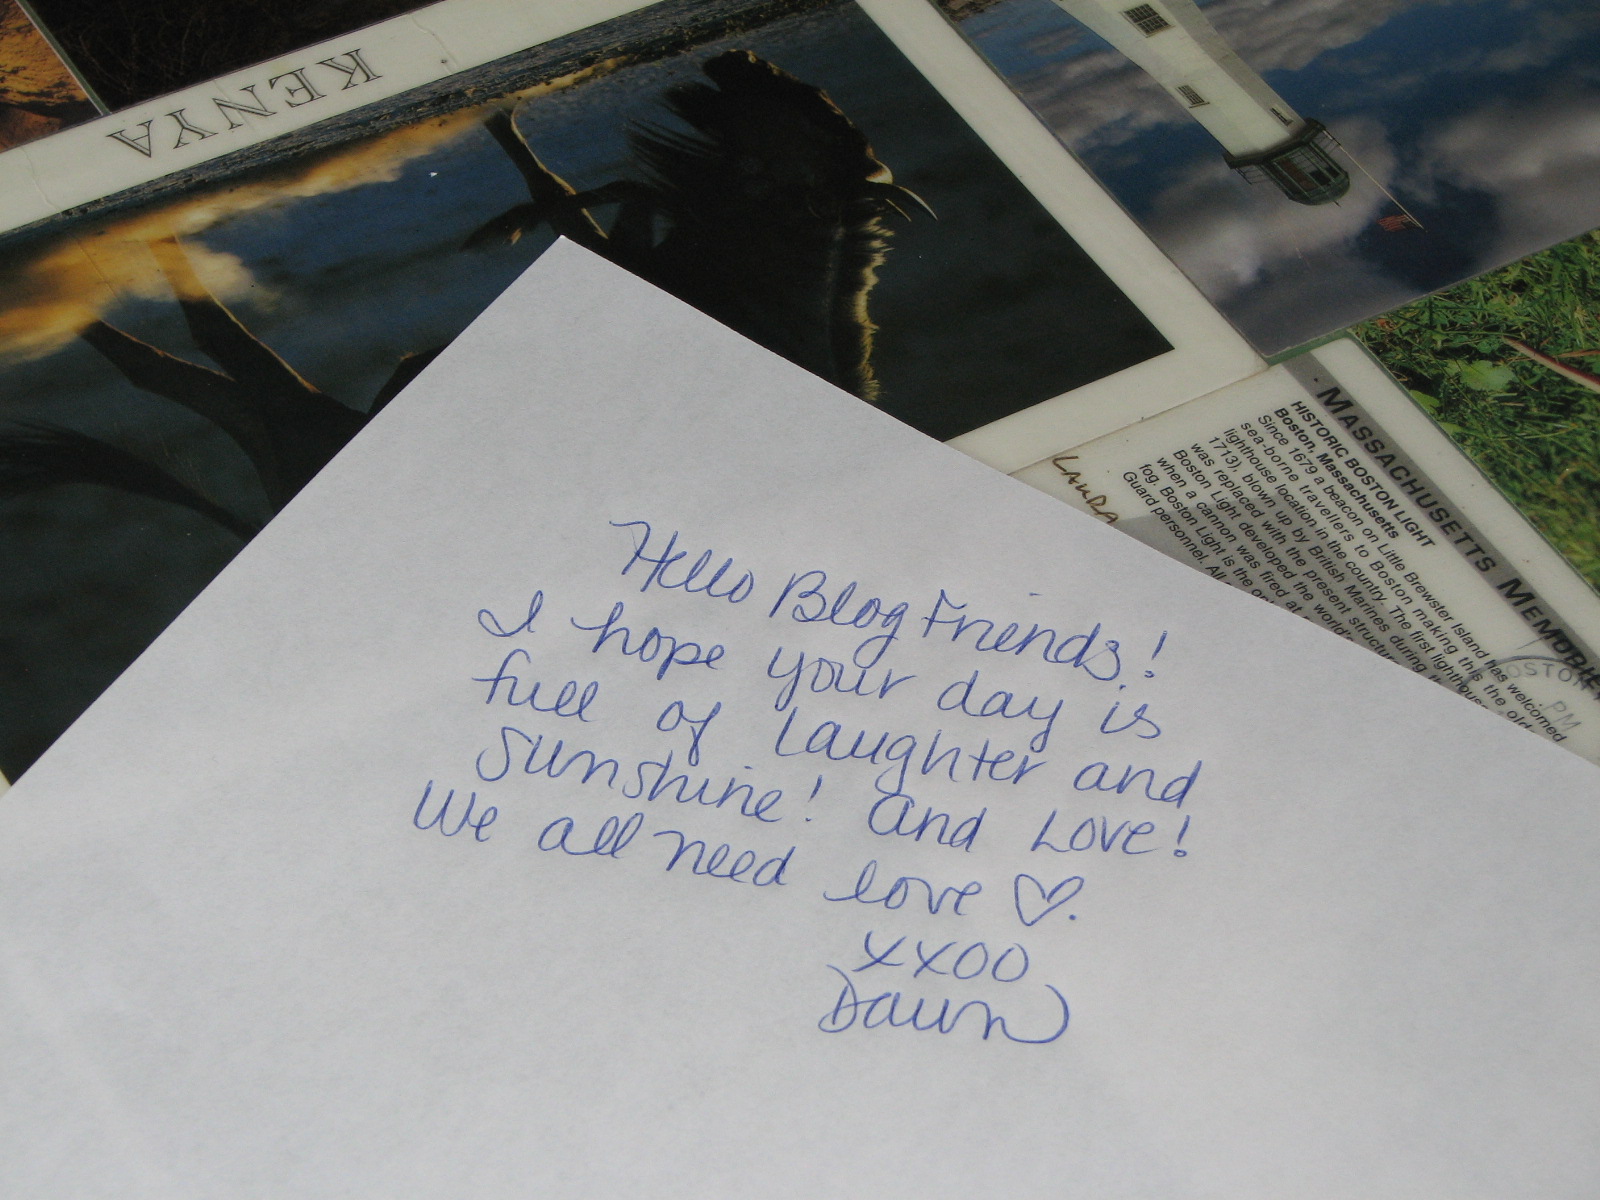 KENYA
Hello Blog Friends!
I hope your day is
full of Laughter and
Sunshine! And Love!
We all need love ♡.
XXOO
Dawn
LAURA
· MASSACHUSETTS
HISTORIC BOSTON LIGHT
Boston, Massachusetts
Since 1679 a beacon on Little Brewster Island has welcomed
sea-borne travellers to Boston making this the
lighthouse location in the country. The first
1713), blown up by British Marines during
was replaced with the present
Boston Light developed the world's
when a cannon was fired at
fog. Boston Light is the
Guard personnel. All
PM